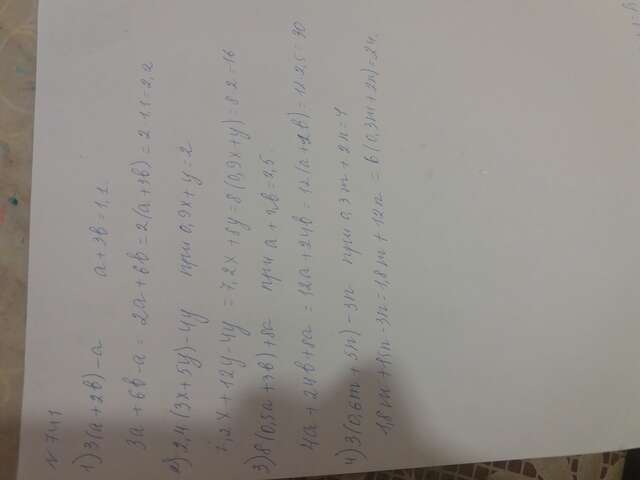 N 741
1) 3(a+2b)-a a+3b=1,1
3a+6b-a=2a+6b=2(a+3b)=2·1,1=2,2
2) 2,4(3x+5y)-4y при 0,9x+y=2
7,2x+12y-4y=7,2x+8y=8(0,9x+y)=8·2=16
3) 8(0,5a+3b)+8a при a+2b=2,5
4a+24b+8a=12a+24b=12(a+2b)=12·2,5=30
4) 3(0,6m+5n)-3n при 0,3m+2n=4
1,8m+15n-3n=1,8m+12n=6(0,3m+2n)=24.